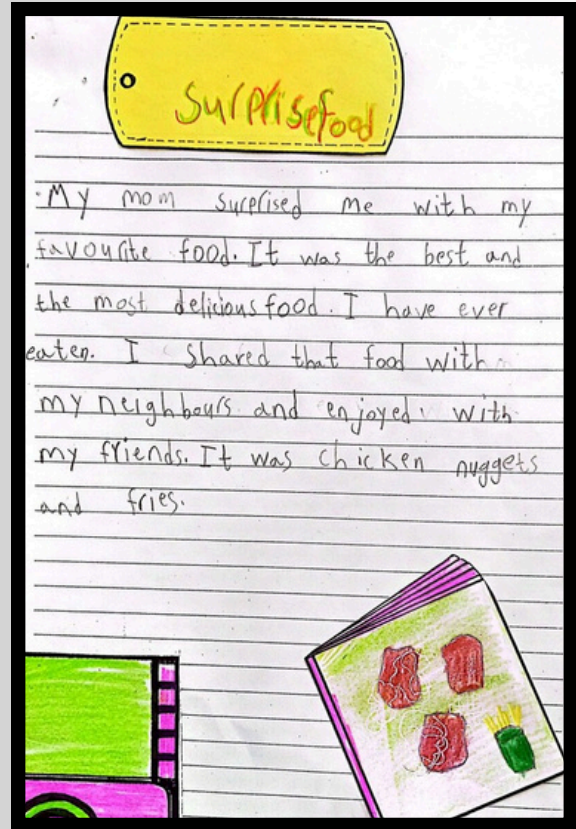 Surprise food
My mom surprised me with my
favourite food. It was the best and
the most delicious food. I have ever
eaten. I Shared that food with
my neighbours and enjoyed with
my friends. It was chicken nuggets
and fries.